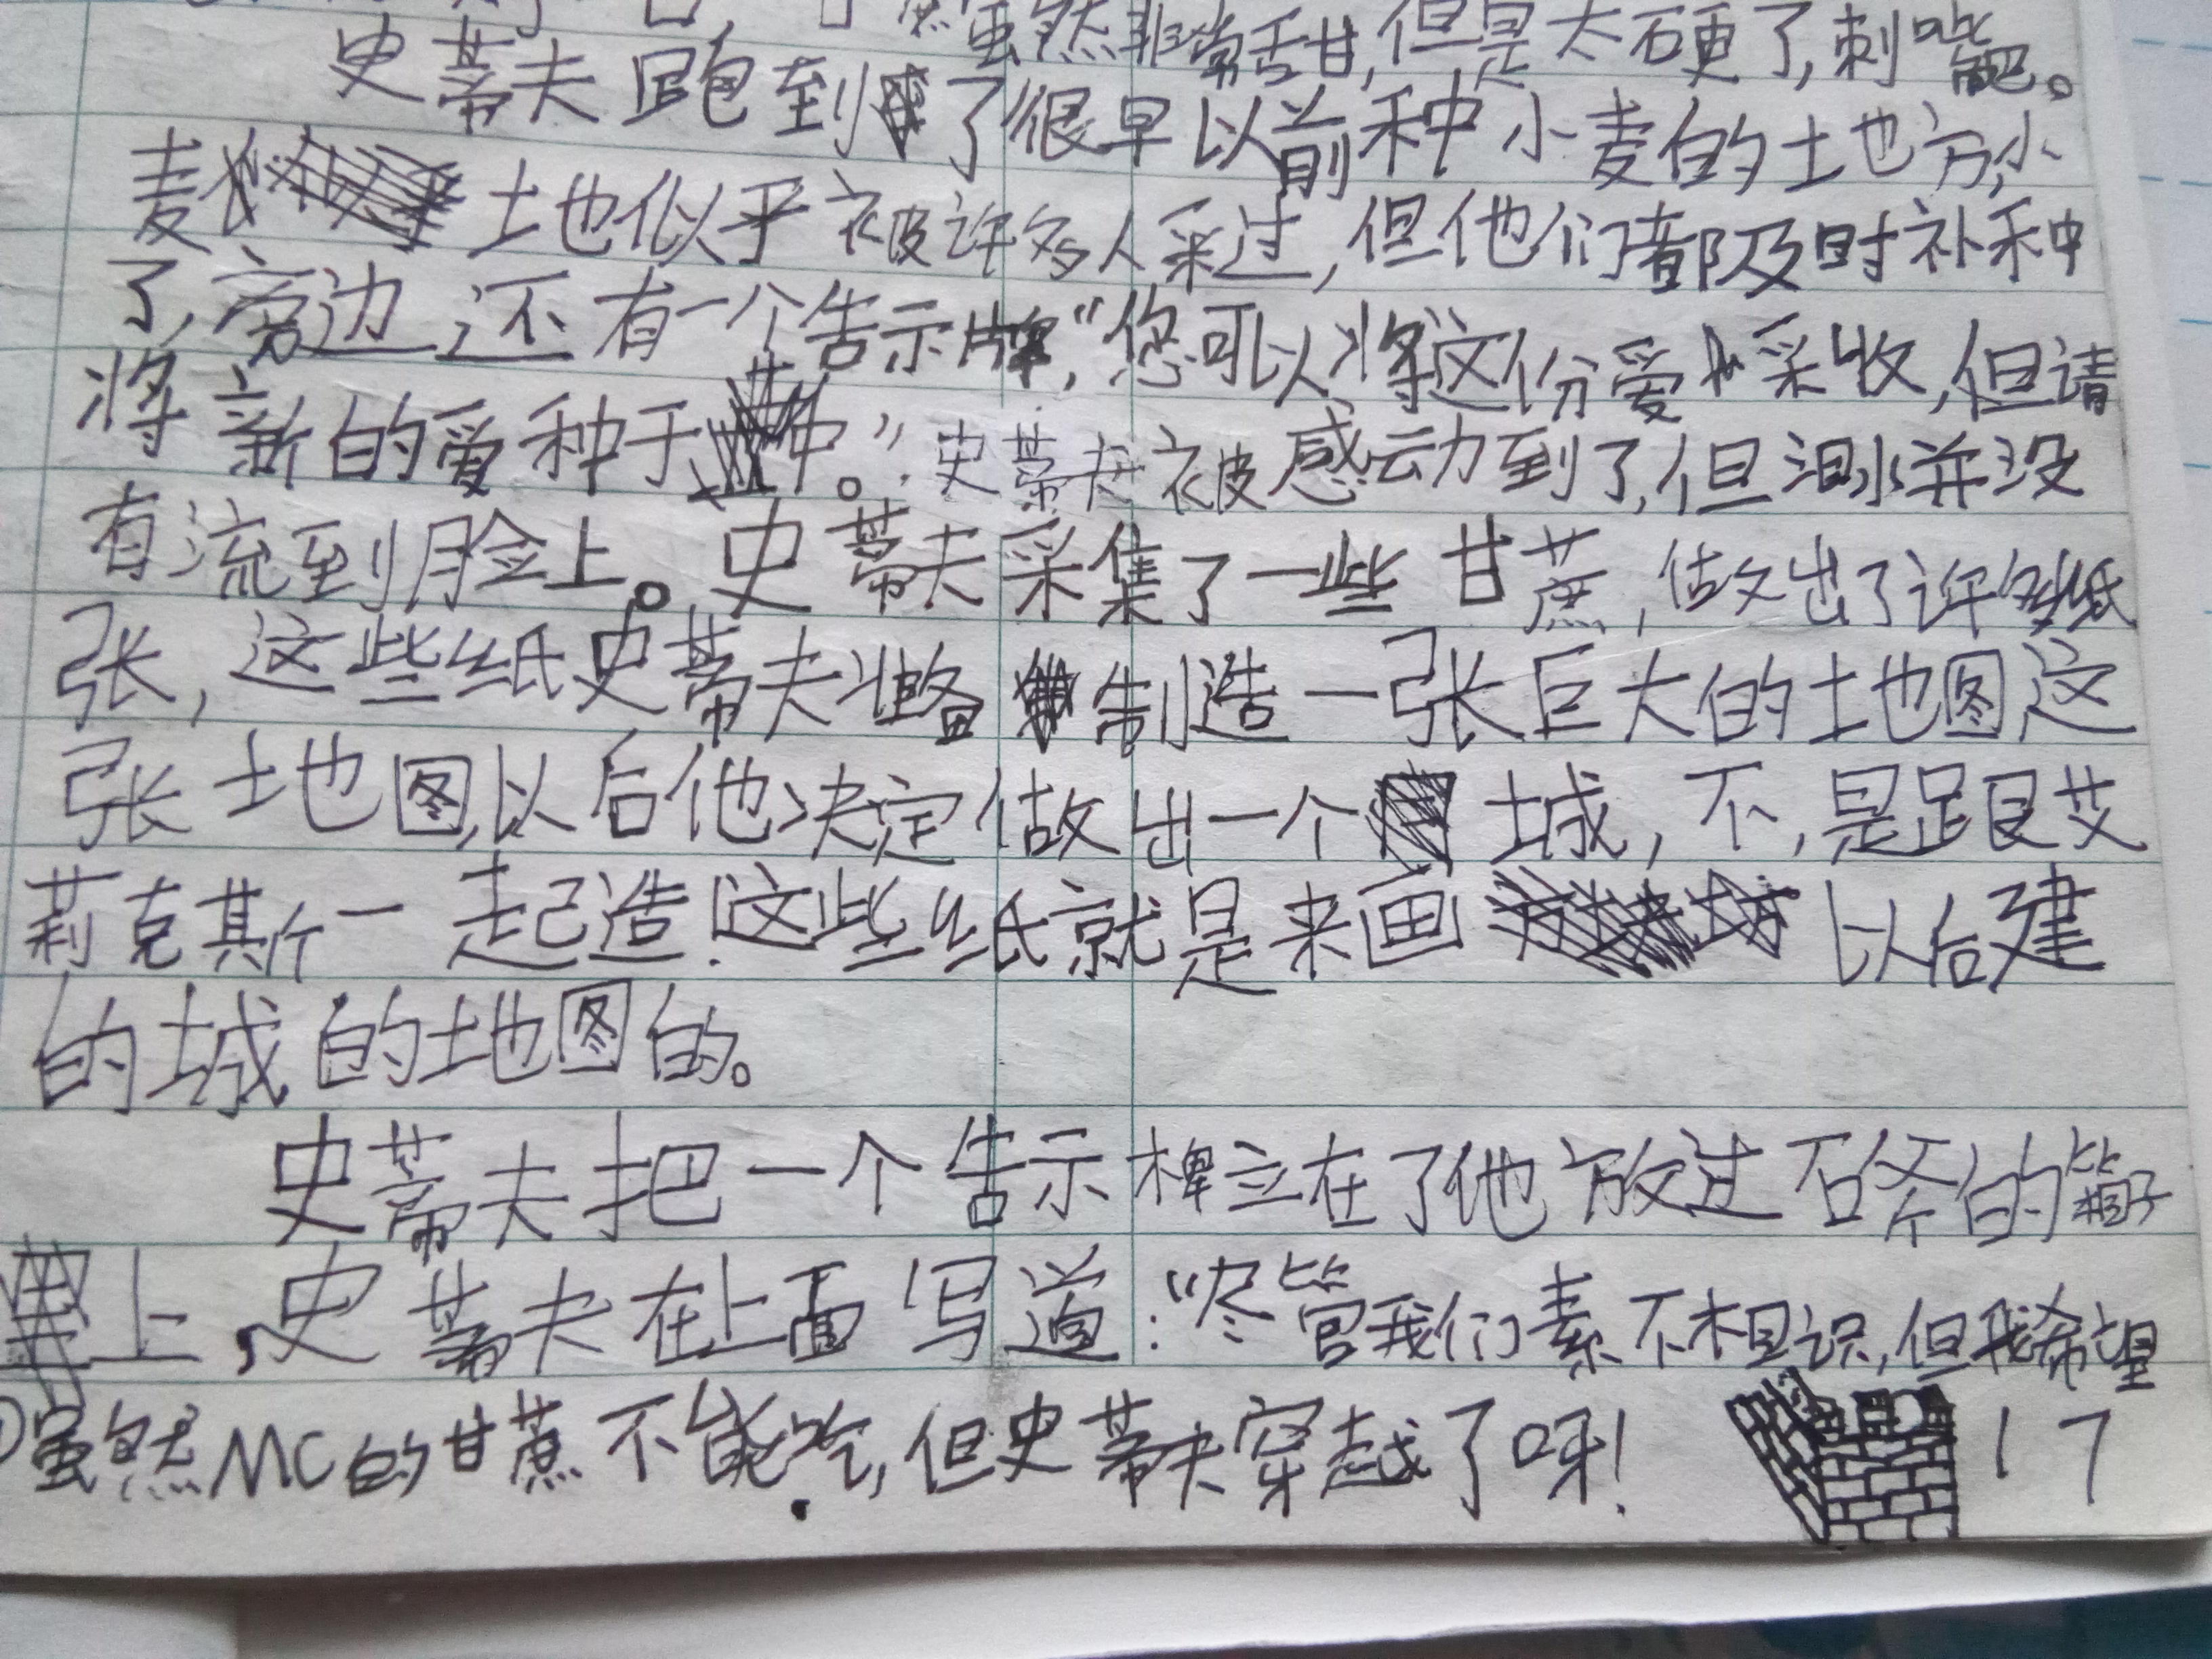 虽然非常甜,但是太硬了,刺嘴巴。
史蒂夫跑到了很早以前种小麦的土地方,小
麦土地似乎被许多人采过,但他们都及时补种
了,旁边还有一个告示牌,“您可以将这份爱采收,但请
将新的爱种于中。”史蒂夫被感动到了,但泪水并没
有流到脸上。史蒂夫采集了一些甘蔗,做出了许多纸
张,这些纸史蒂夫准备制造一张巨大的地图,这
张地图,以后他决定做出一个城,不,是跟艾
莉克斯一起造!这些纸就是来画以后建
的城的地图的。
史蒂夫把一个告示牌立在了他放过石斧的箱子
上,史蒂夫在上面写道:“尽管我们素不相识,但我希望
①虽然MC的甘蔗不能吃,但史蒂夫穿越了呀!
17